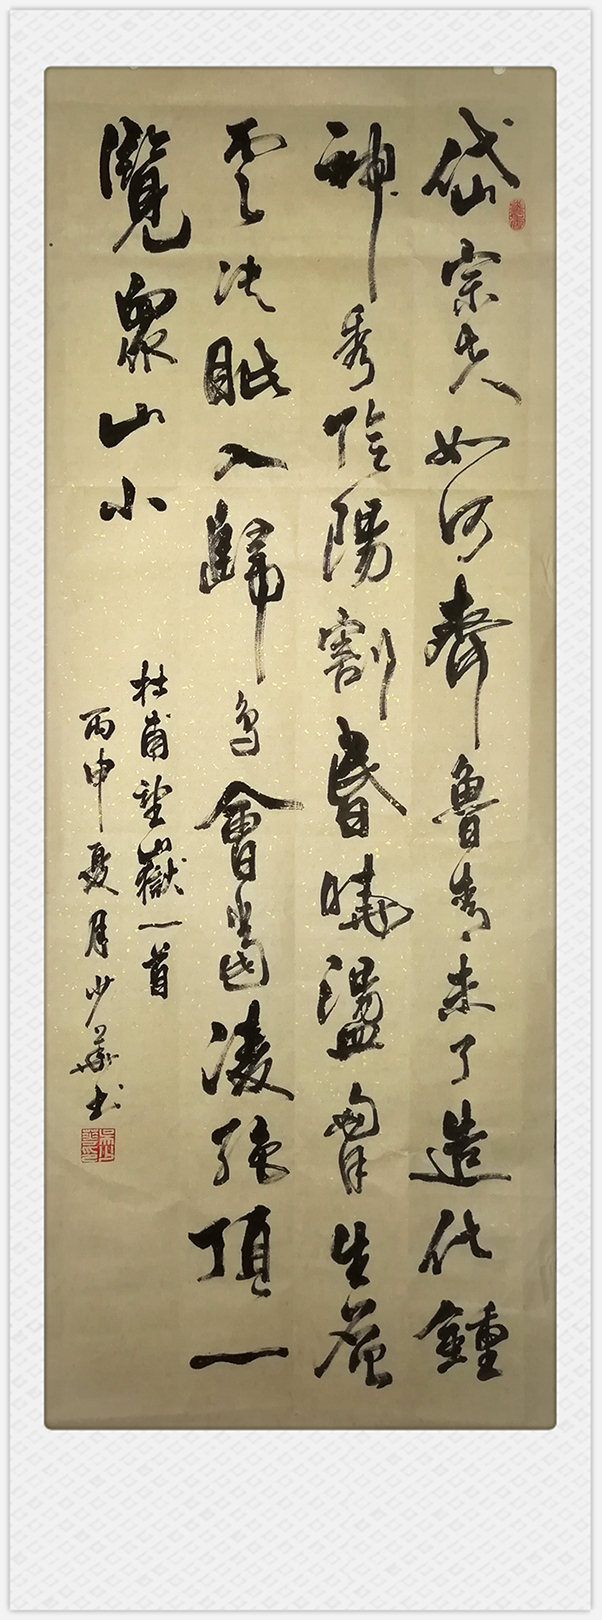 岱宗夫如何齊魯青未了造化鍾
神秀陰陽割昏曉盪胸生層
雲決眦入歸鳥會當凌絕頂一
覽衆山小
杜甫望嶽一首
丙申夏月少華书